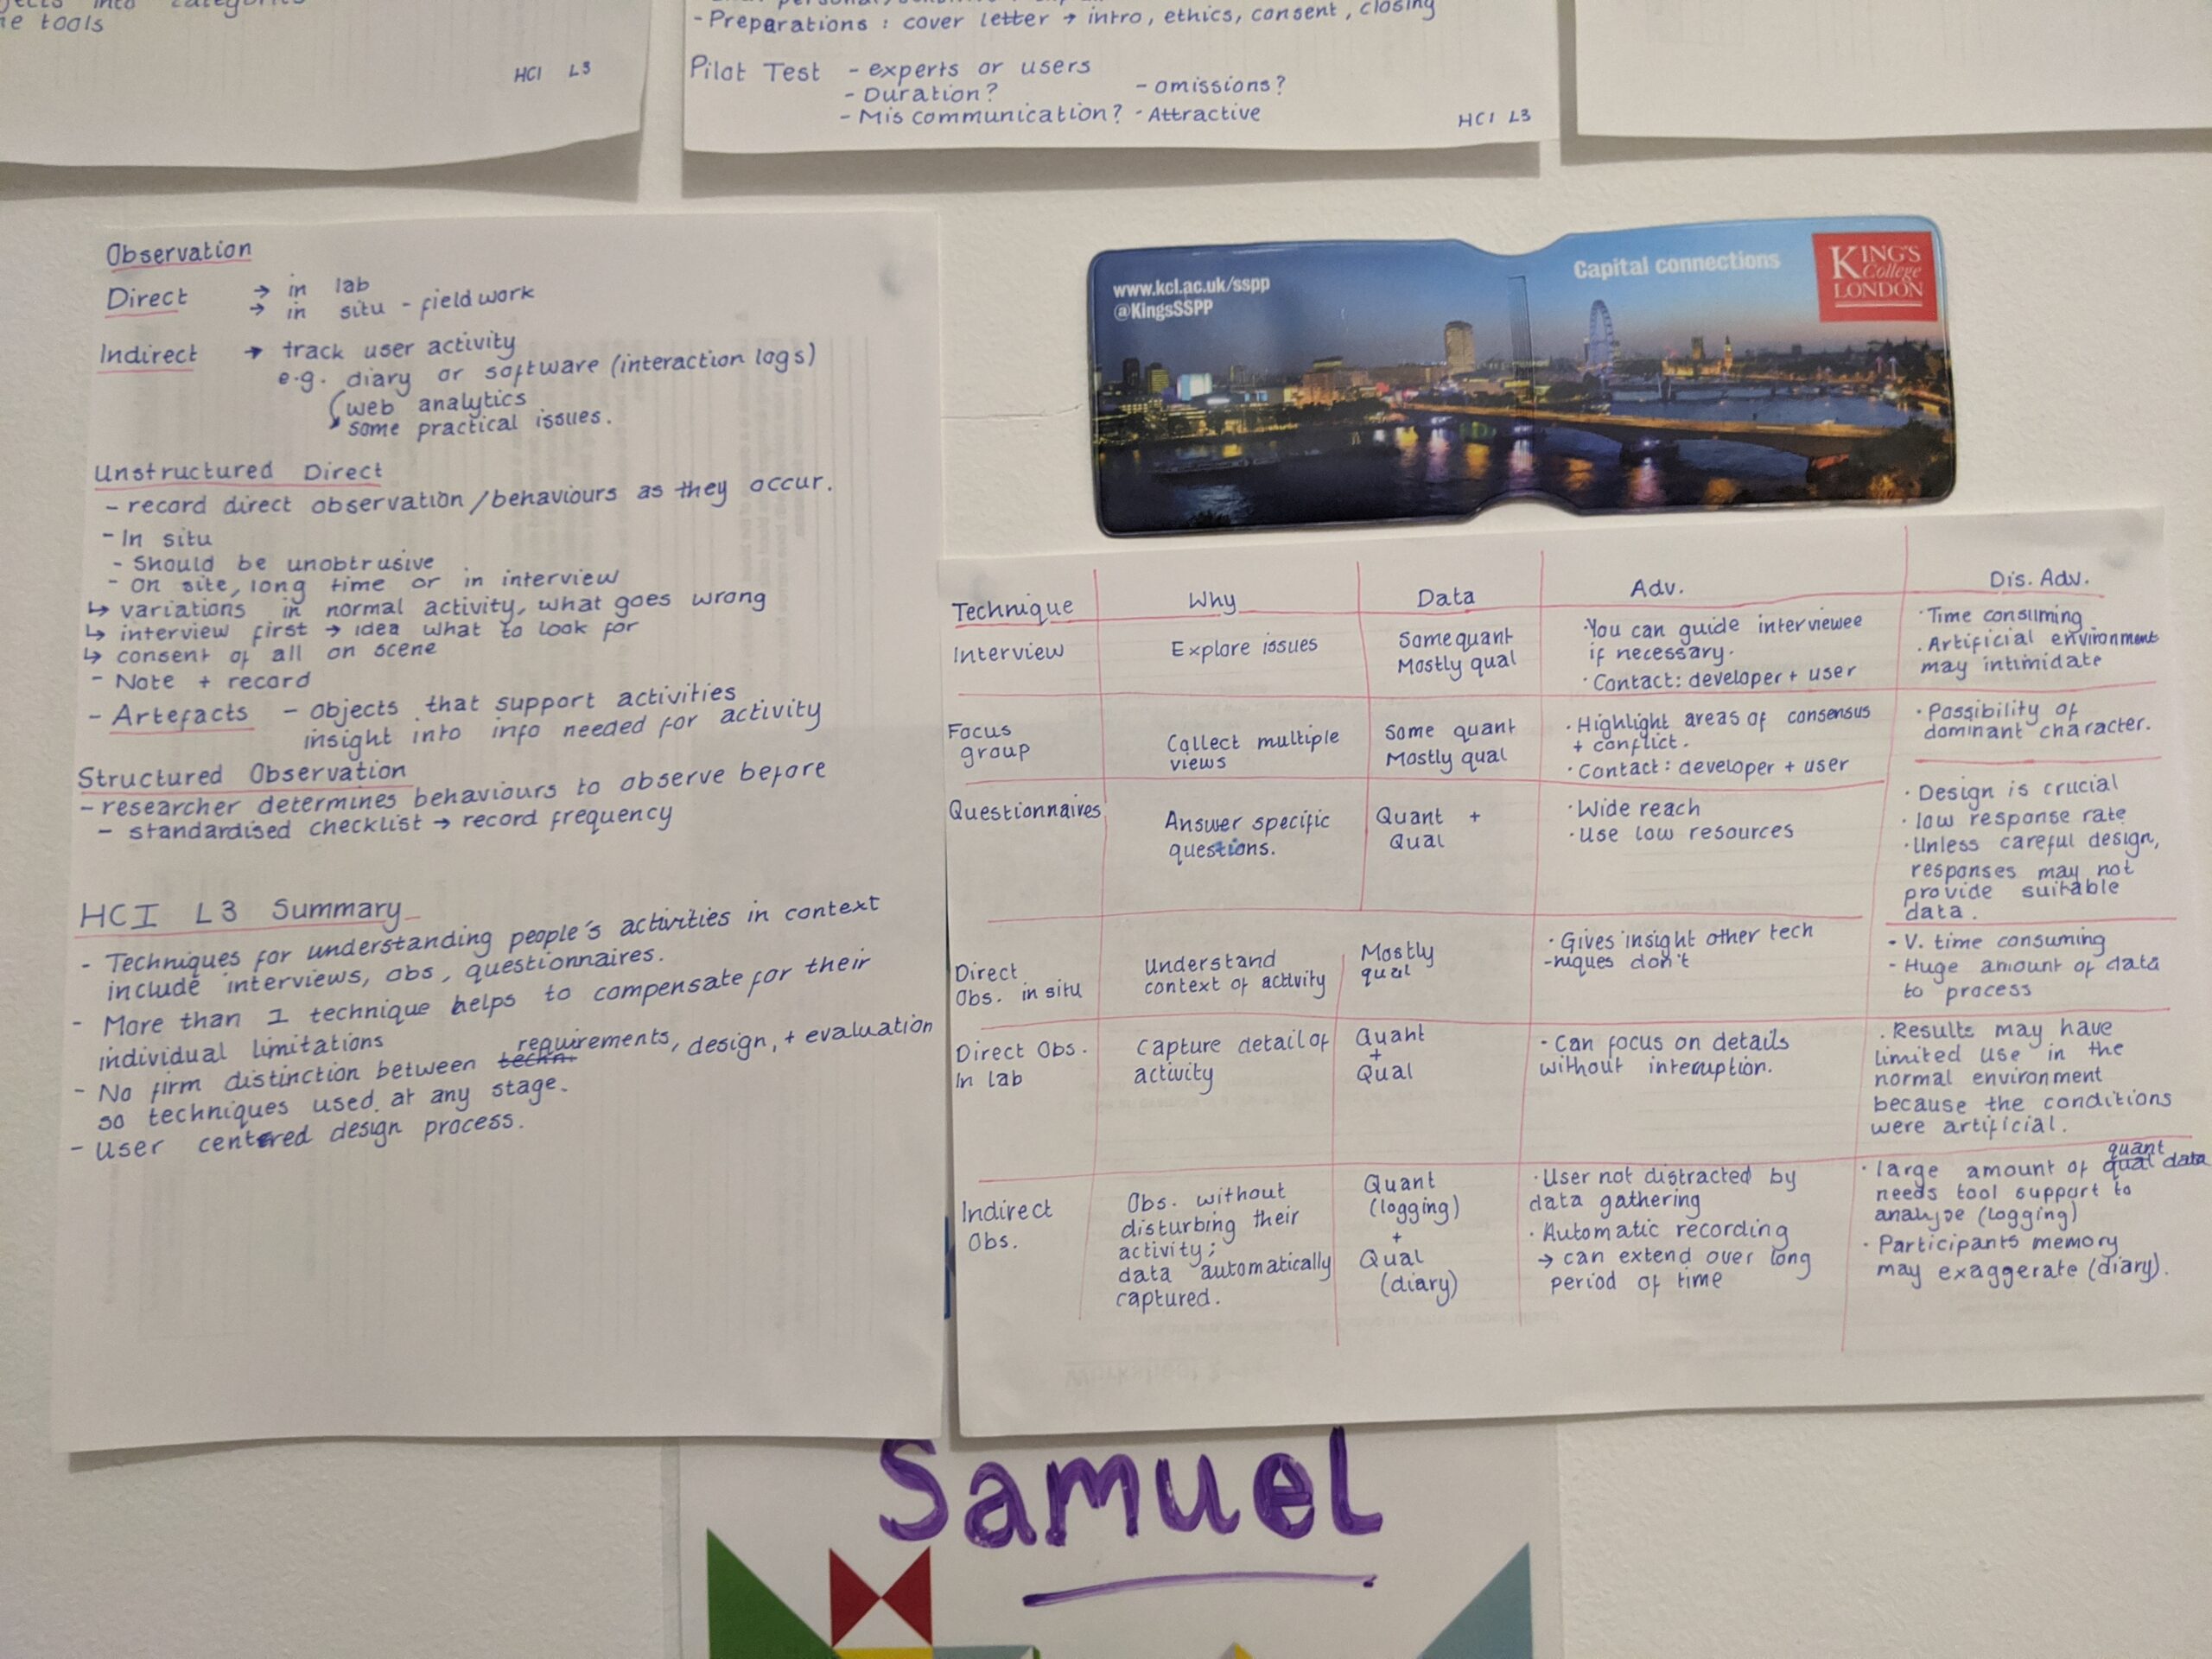 categories
tools
HCI L3
- Preparations : cover letter → intro, ethics, consent, closing
Pilot Test - experts or users
- Duration? - omissions?
- Mis communication? - Attractive
HCI L3
Observation
Direct → in lab
→ in situ - fieldwork
Indirect → track user activity
e.g. diary or software (interaction logs)
web analytics
some practical issues.
Unstructured Direct
- record direct observation/behaviours as they occur.
- In situ
- Should be unobtrusive
- On site, long time or in interview
↳ variations in normal activity, what goes wrong
↳ interview first → idea what to look for
↳ consent of all on scene
- Note + record
- Artefacts - objects that support activities
insight into info needed for activity
Structured Observation
- researcher determines behaviours to observe before
- standardised checklist → record frequency
HCI L3 Summary
- Techniques for understanding people's activities in context
include interviews, obs, questionnaires.
- More than 1 technique helps to compensate for their
individual limitations
- No firm distinction between techn. requirements, design, + evaluation
so techniques used at any stage.
- User centered design process.
www.kcl.ac.uk/sspp
@KingsSSPP
Capital connections
KING'S
College
LONDON
Technique Why Data Adv. Dis. Adv.
Interview
Explore issues
Some quant
Mostly qual
·You can guide interviewee
if necessary.
· Contact: developer + user
· Time consuming
· Artificial environment
may intimidate
Focus
group
Collect multiple
views
Some quant
Mostly qual
· Highlight areas of consensus
+ conflict.
· Contact: developer + user
· Possibility of
dominant character.
Questionnaires
Answer specific
questions.
Quant +
Qual
· Wide reach
· Use low resources
· Design is crucial
· low response rate
· Unless careful design,
responses may not
provide suitable
data.
Direct
Obs. in situ
Understand
context of activity
Mostly
qual
· Gives insight other tech
-niques don't
- V. time consuming
- Huge amount of data
to process
Direct Obs.
In lab
Capture detail of
activity
Quant
+
Qual
· Can focus on details
without interruption.
· Results may have
limited use in the
normal environment
because the conditions
were artificial.
Indirect
Obs.
Obs. without
disturbing their
activity;
data automatically
captured.
Quant
(logging)
+
Qual
(diary)
· User not distracted by
data gathering
· Automatic recording
→ can extend over long
period of time
quant
· large amount of qual data
needs tool support to
analyse (logging)
· Participants memory
may exaggerate (diary).
Samuel